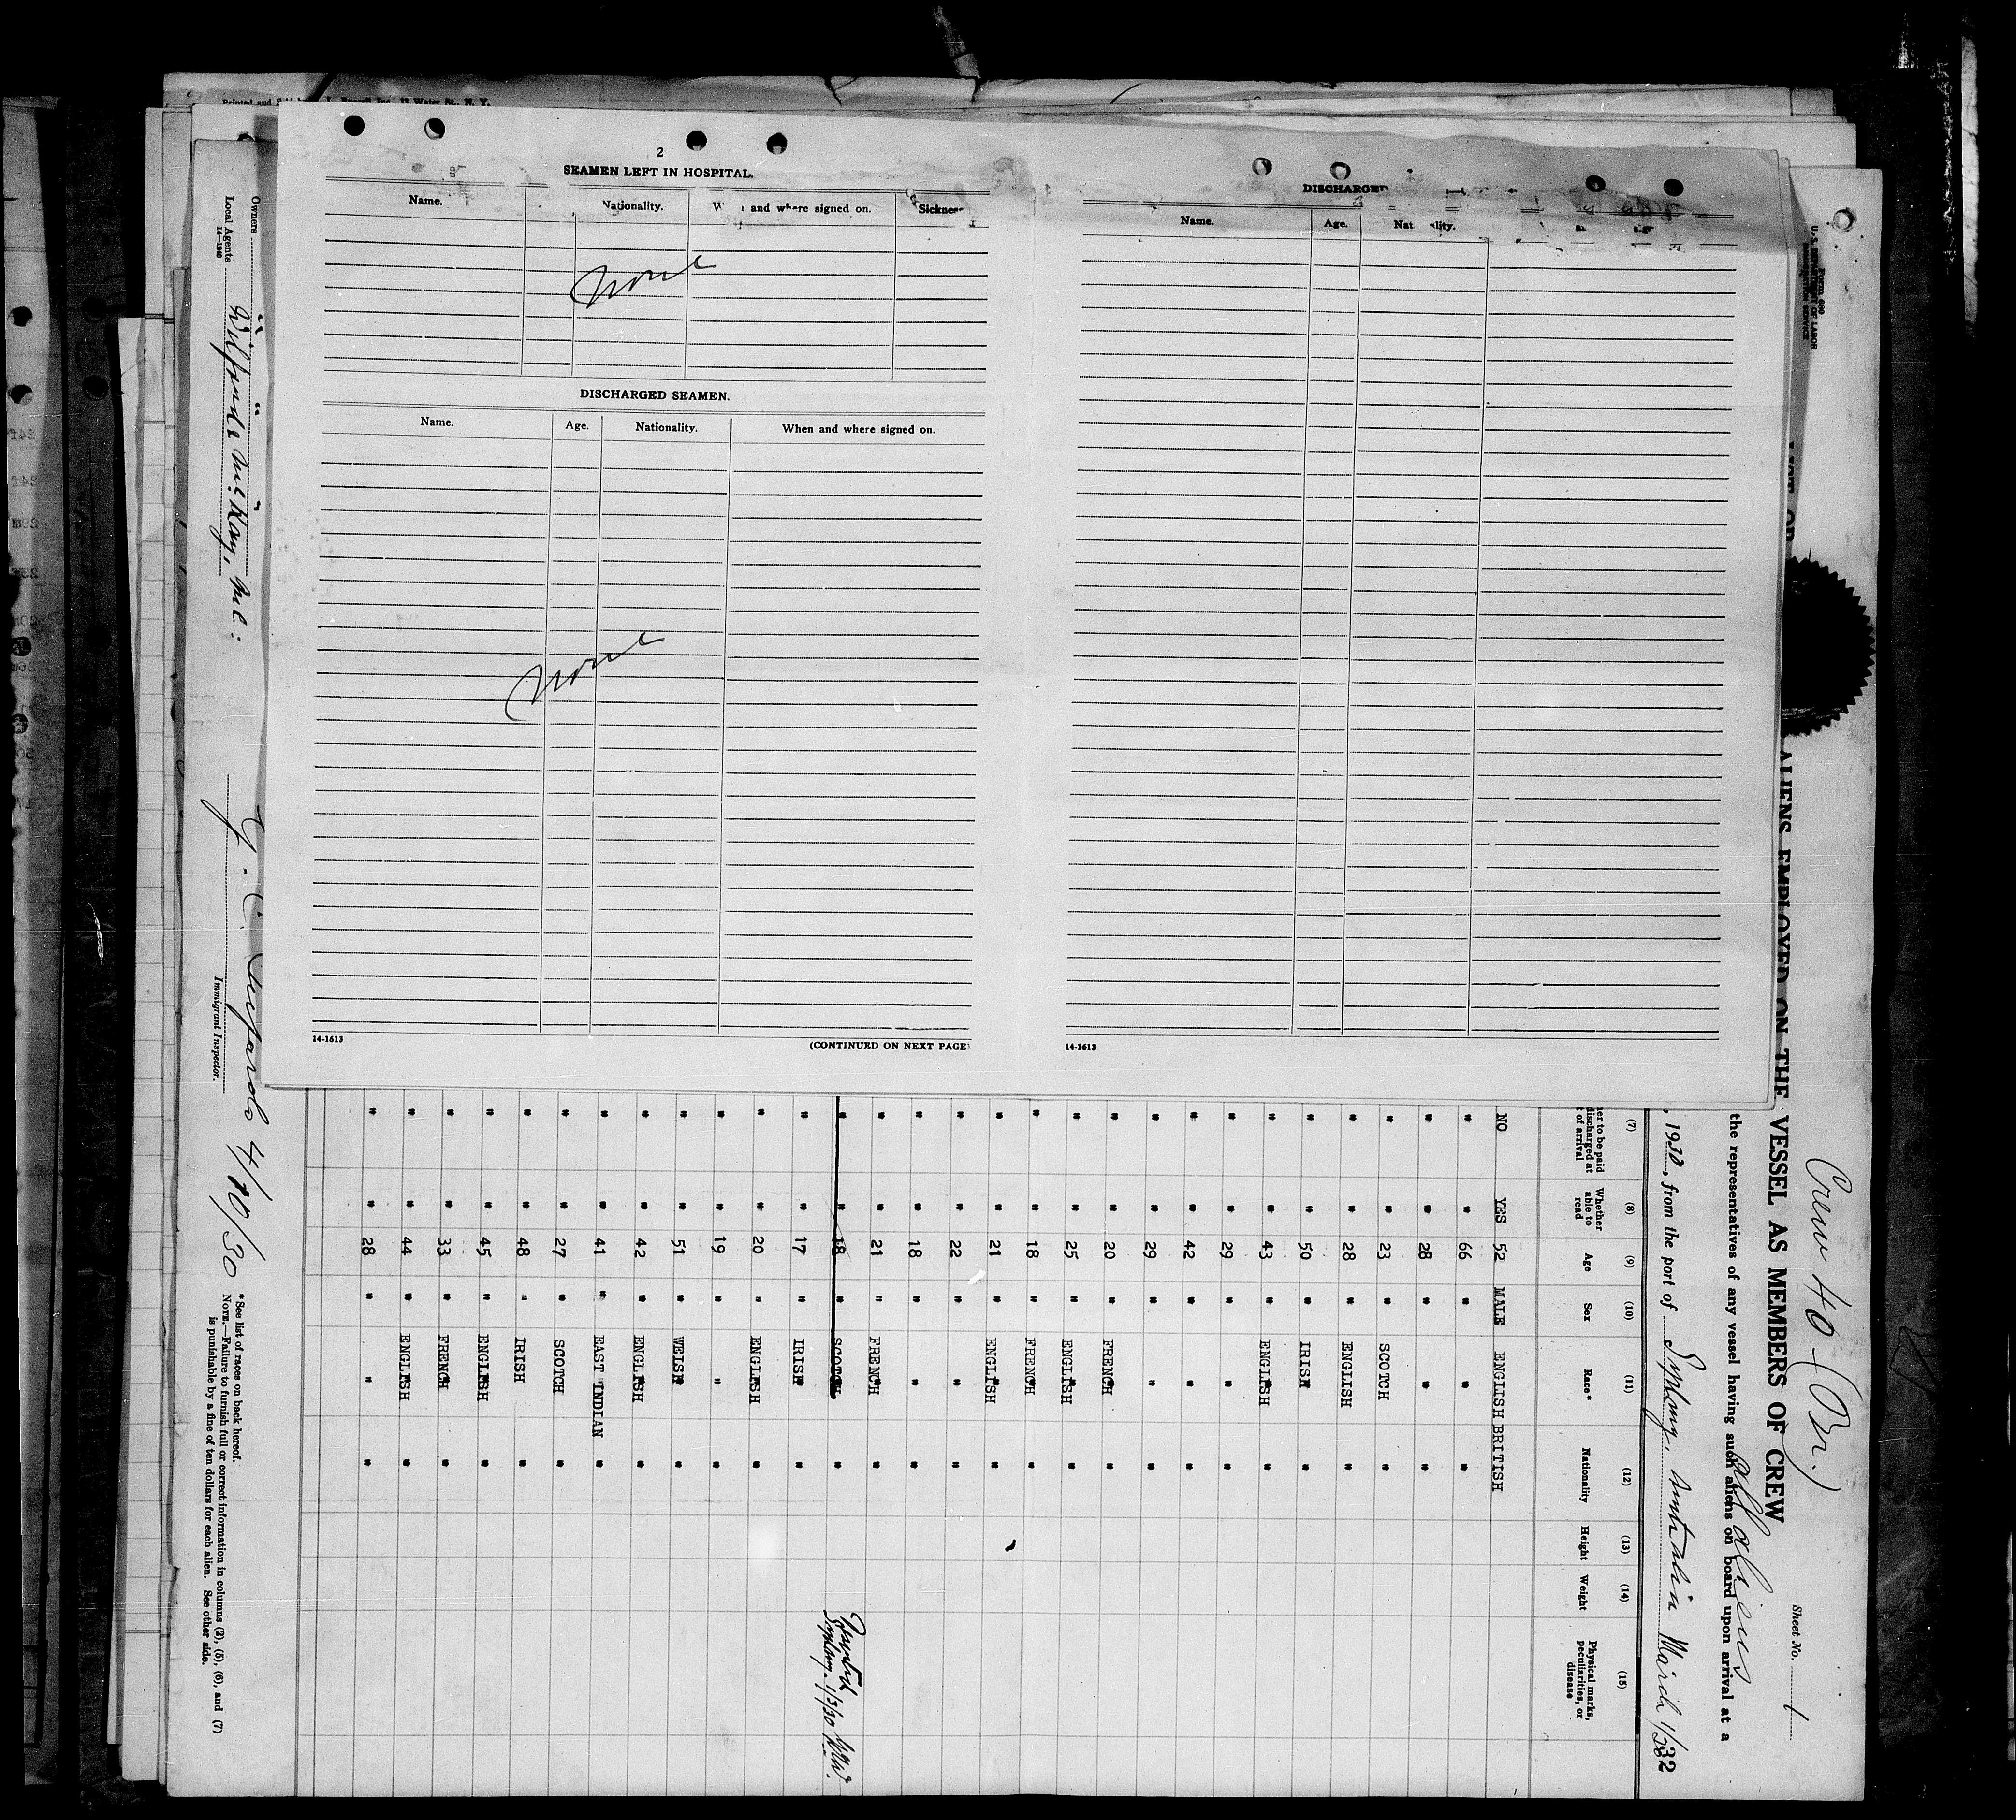 Printed and
11 Water St., N. Y.
2
SEAMEN LEFT IN HOSPITAL.
Name. Nationality. and where signed on. Sickness
None
DISCHARGED SEAMEN.
Name. Age. Nationality. When and where signed on.
None
14-1613 (CONTINUED ON NEXT PAGE)
DISCHARGED
Name. Age.
14-1613
Form 680
U. S. DEPARTMENT OF LABOR
IMMIGRATION SERVICE
Crew 40 (Br.)
Sheet No. 1
ALIENS EMPLOYED ON THE VESSEL AS MEMBERS OF CREW
all aliens
the representatives of any vessel having such aliens on board upon arrival at a
, 1930, from the port of Sydney, Australia March 1/
(7) (8) (9) (10) (11) (12) (13) (14) (15)
to be paid discharged at of arrival
Whether able to read
Age
Sex
Race*
Nationality
Height
Weight
Physical marks, peculiarities, or disease
NO YES 52 MALE ENGLISH BRITISH
" " 66 " " "
" " 28 " " "
" " 23 " SCOTCH "
" " 28 " ENGLISH "
" " 50 " IRISH "
" " 43 " ENGLISH "
" " 29 " " "
" " 42 " " "
" " 29 " " "
" " 20 " FRENCH "
" " 25 " ENGLISH "
" " 18 " FRENCH "
" " 21 " ENGLISH "
" " 22 " " "
" " 18 " " "
" " 21 " FRENCH "
" " 18 " SCOTCH "
Sydney. 1/3/30
" " 17 " IRISH "
" " 20 " ENGLISH "
" " 19 " " "
" " 51 " WELSH "
" " 42 " ENGLISH "
" " 41 " EAST INDIAN "
" " 27 " SCOTCH "
" " 48 " IRISH "
" " 45 " ENGLISH "
" " 33 " FRENCH "
" " 44 " ENGLISH "
" " 28 " " "
Owners
Local Agents
14-1240
4/10/30
Immigrant Inspector.
*See list of races on back hereof.
NOTE.—Failure to furnish full or correct information in columns (2), (5), (6), and (7)
is punishable by a fine of ten dollars for each alien. See other side.